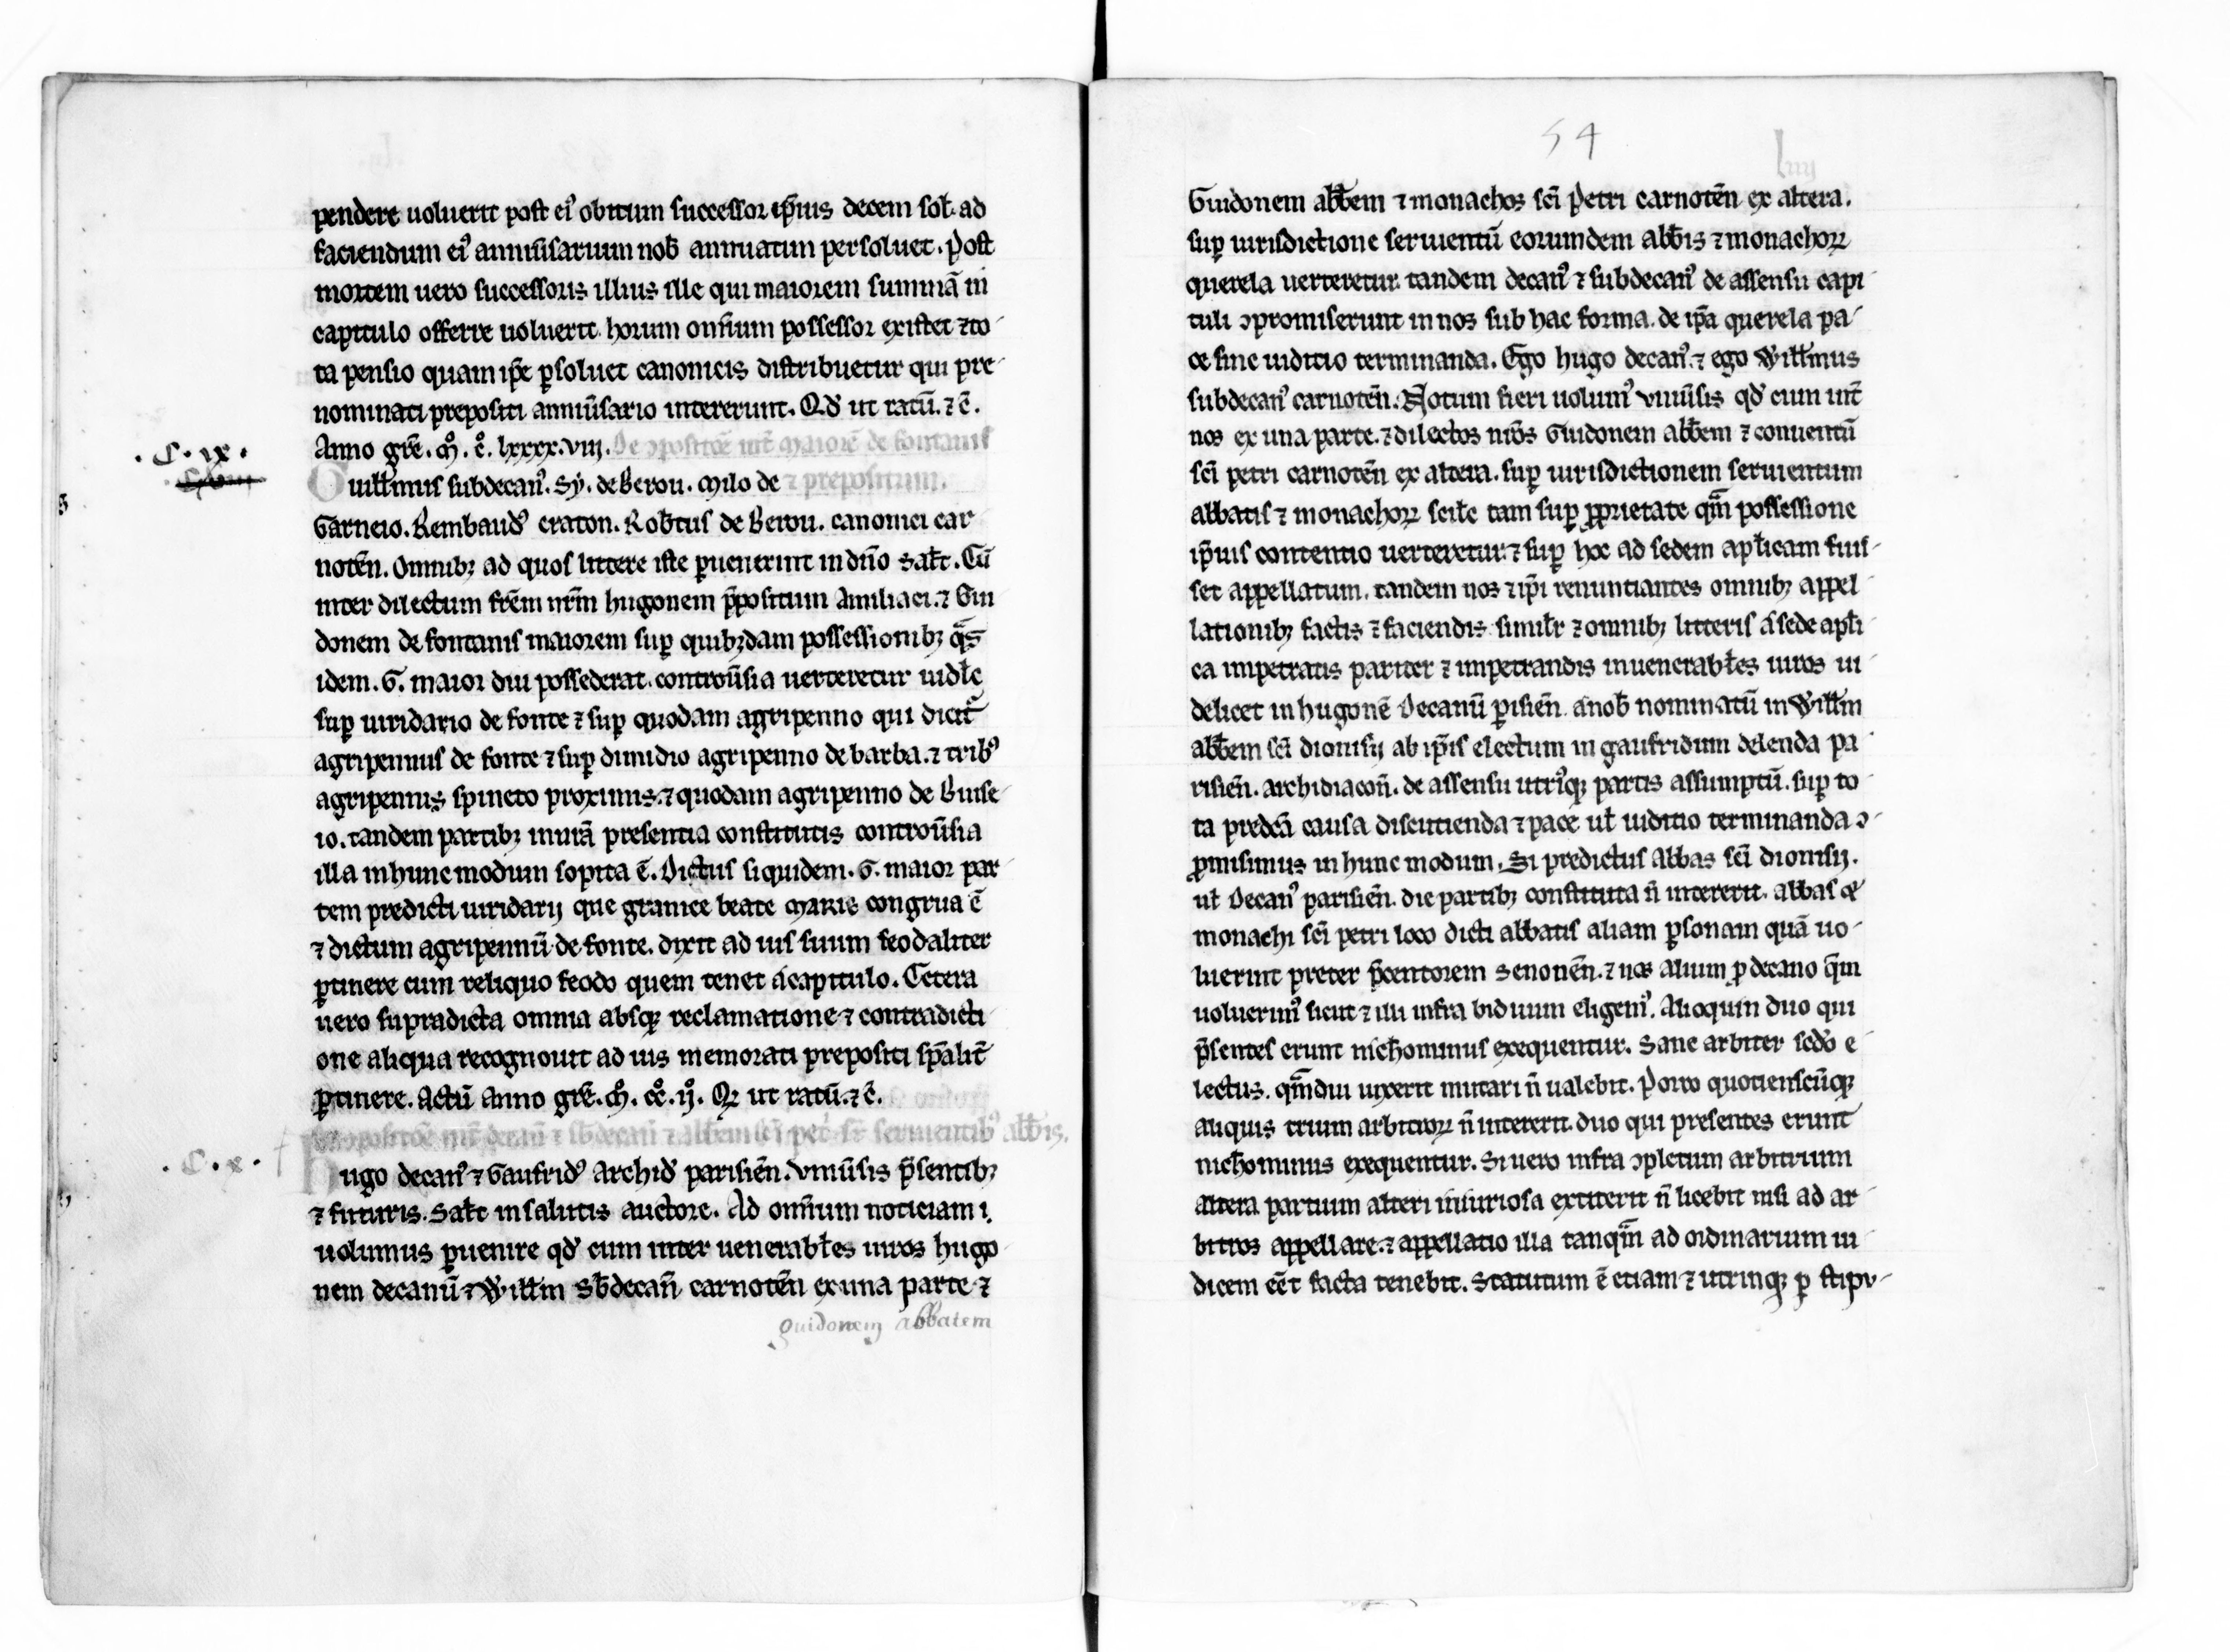 pendere uoluerit post ei⁹ obitum successor ip̄ius decem sol̄. ad
faciendum ei⁹ anniu̅sarium nob̄ annuatim persoluet. Post
mortem uero successoris illius ille qui maiorem summā in
capitulo offerre uoluerit horum omn̄ium possessor existet ⁊ to-
ta pensio quam ip̄e ꝑsoluet canonicis distribuetur qui pre-
nominati prepositi anniu̅sario intererunt. Qd̄ ut ratū. ⁊ c̄.
Anno gr̄e. m̊. c̊. lxxxx. viij. De ɔpositōe int̄ maiorē de fontanis
.C.ix.
Guill̄mus subdecan⁹. Sy. de Berou. Milo de ⁊ prepositum.
Garneio. Rembaud⁹ craton. Rob̄tus de Berou. canonici car-
notēn. Omnibꝫ ad quos littere iste ꝑuenerint in dn̄o sal̄t. Cū
inter dilectum fr̄em nr̄m hugonem p̄positum Amiliaci. ⁊ Gui
donem de fontanis maiorem suꝑ quibꝫdam possessionibꝫ q̄s
idem. G. maior diu possederat. controu̅sia uerteretur uidl̄c
suꝑ uiridario de fonte ⁊ suꝑ quodam agripenno qui dicit᷑
agripennus de fonte ⁊ suꝑ dimidio agripenno de barba. ⁊ trib⁹
agripennis spineto proximis. ⁊ quodam agripenno de Buise-
io. tandem partibꝫ in nr̄a presentia constitutis controu̅sia
illa in hunc modum sopita ē. Dictus siquidem. G. maior par-
tem predicti uiridarij que granice beate marie congrua ē
⁊ dictum agripennū de fonte. dixit ad ius suum feodaliter
ꝑtinere cum reliquo feodo quem tenet á capitulo. Cetera
uero supradicta omnia absqꝫ reclamatione ⁊ contradicti-
one aliqua recognouit ad ius memorati prepositi sp̄alit̄
ꝑtinere. Actū Anno gr̄e. m̊. cc̊. ij̊. Qꝫ ut ratū. ⁊ c̄.
ɔpositōe int̄ decan̄ ⁊ sb̄decan̄ ⁊ abb̄em sc̄i pet̄ sr̄ seruientib⁹ abb̄is.
.C.x.
Hugo decan⁹ ⁊ Gaufrid⁹ Archid̄ parisiēn. vniu̅sis p̄sentibꝫ
⁊ futuris. Sal̄t in salutis auctore. Ad omn̄ium noticiam
uolumus ꝑuenire qd̄ cum inter uenerabl̄es uiros hugo-
nem decanū ⁊ Will̄m Sb̄decan̄ carnotēn ex una parte ⁊
guidonem abbatem
54
liiij
Guidonem abb̄em ⁊ monachos sc̄i Petri carnotēn ex altera.
suꝑ iurisdictione seruientū eorumdem abb̄is ⁊ monachoꝝ
querela uerteretur. tandem decan⁹ ⁊ subdecan⁹ de assensu capi-
tuli ɔpromiserunt in nos sub hac forma. de ip̄a querela pa-
ce siue iuditio terminanda. Ego hugo decan⁹. ⁊ ego Will̄mus
subdecan⁹ carnotēn. Notum fieri uolum⁹ vniu̅sis qd̄ cum int̄
nos ex una parte. ⁊ dilectos nr̄os Guidonem abb̄em ⁊ conuentū
sc̄i petri carnotēn ex altera. suꝑ iurisdictionem seruientum
abbatis ⁊ monachoꝝ scil̄c tam suꝑ ꝓprietate qm̄ possessione
ip̄ius contentio uerteretur. ⁊ suꝑ hoc ad sedem apl̄icam fuis-
set appellatum. tandem nos ⁊ ip̄i renuntiantes omnibꝫ appel-
lationibꝫ factis ⁊ faciendis simil̄r ⁊ omnibꝫ litteris á sede apl̄i-
ca impetratis pariter ⁊ impetrandis in uenerabl̄es uiros ui-
delicet in hugonē Decanū ꝑisiēn. á nob̄ nominatū in Will̄m
abb̄em sc̄i dionisij ab ip̄is electum in gaufridum delenda pa-
risiēn. archidiacon̄. de assensu utri⁹qꝫ partis assumptū. suꝑ to-
ta predc̄a causa discutienda ⁊ pace ul̄ iuditio terminanda ɔ-
ꝓmisimus in hunc modum. Si predictus Abbas sc̄i dionisij.
ul̄ Decan⁹ parisiēn. die partibꝫ constituta n̄ intererit. abbas ⁊
monachi sc̄i petri loco dicti abbatis aliam ꝑsonam quā uo-
luerint preter p̄centorem senonēn. ⁊ nos alium ꝓ decano q̄m
uoluerim⁹ sicut ⁊ illi infra biduum eligem⁹. Alioquin duo qui
p̄sentes erunt nich̄ominus exequentur. Sane arbiter sc̄do e-
lectus. qm̄diu uixerit mutari n̄ ualebit. Porro quotienscūqꝫ
aliquis trium arbitroꝝ n̄ intererit. duo qui presentes erunt
nich̄ominus exequentur. Si uero infra ɔpletum arbitrium
altera partium alteri iniuriosa extiterit n̄ licebit nisi ad ar-
bitros appellare. ⁊ appellatio illa tanqm̄ ad ordinarium iu-
dicem eēt facta tenebit. Statutum ē etiam ⁊ utrinqꝫ ꝑ stipu-